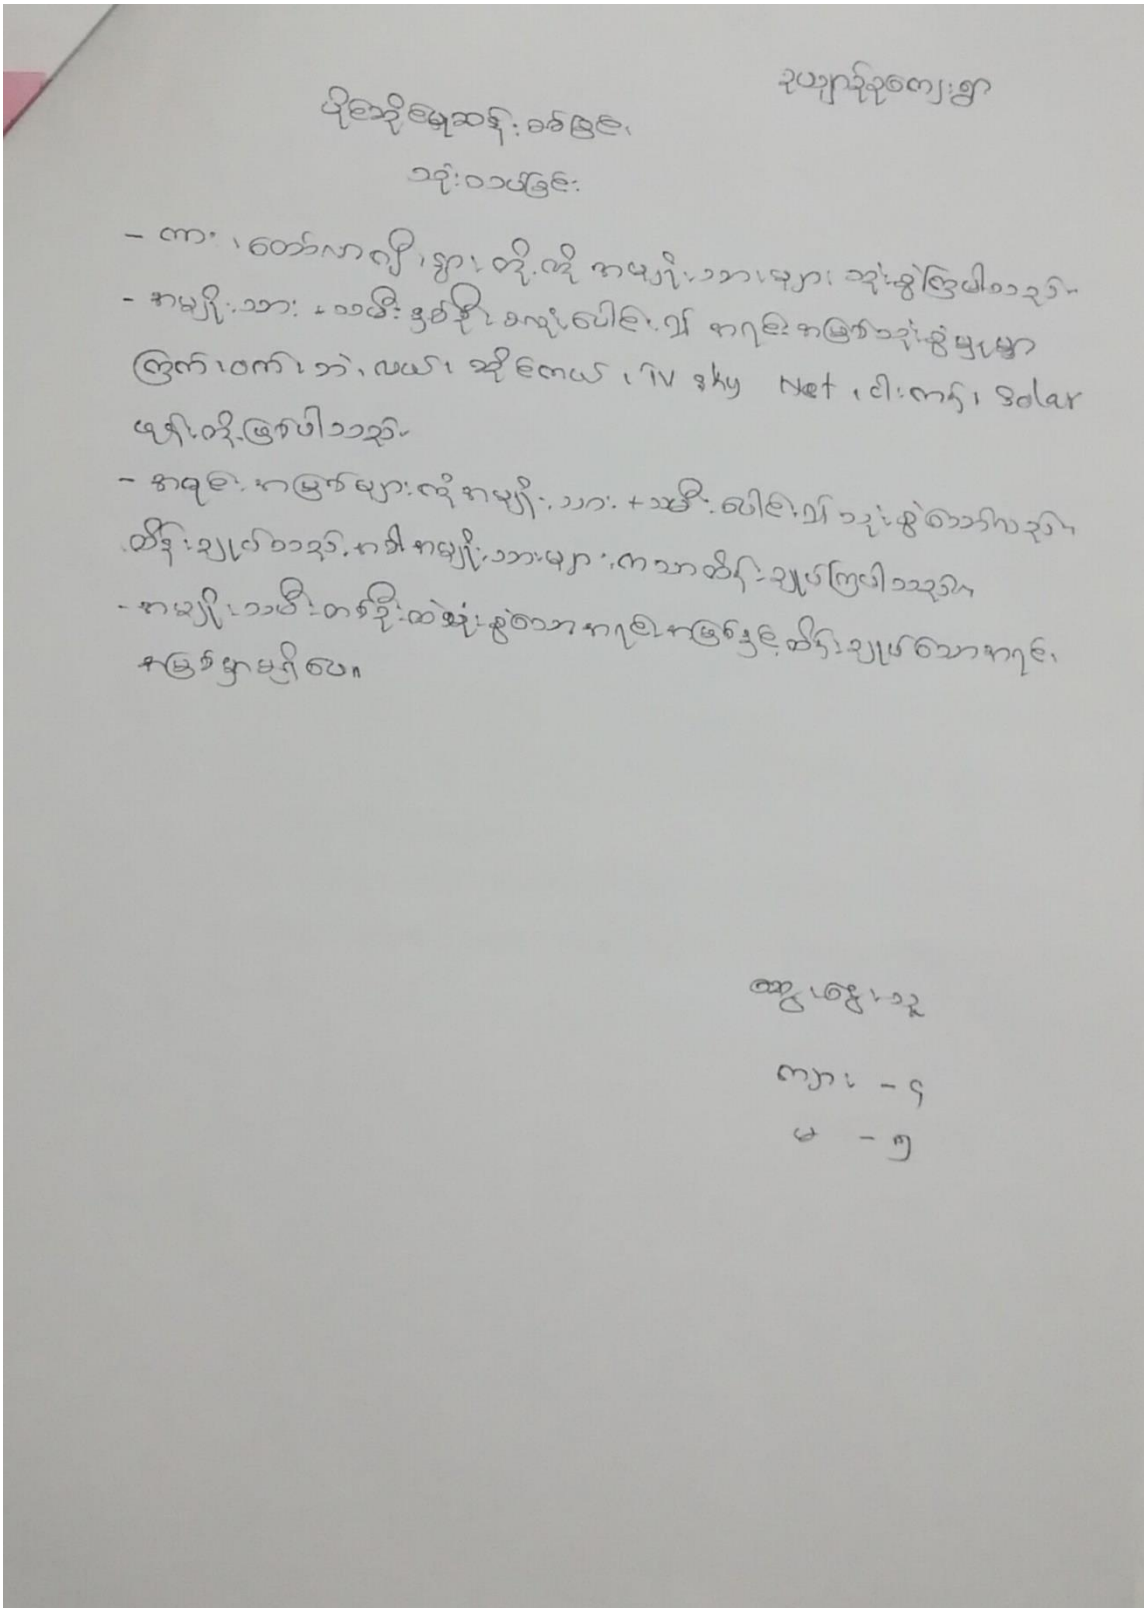 ဒုယျာဉ်ခုကျေးရွာ
ပိုင်ဆိုင်မှုဆန်းစစ်ခြင်း
သုံးသပ်ခြင်း
- ကား၊ တော်လာဂျီ၊ နွား တို့ကို အမျိုးသားများ သုံးစွဲကြပါသည်။
- အမျိုးသား + သမီး နှစ်ဦးစလုံးပေါင်း၍ အရင်းအမြစ်သုံးစွဲမှုမှာ
ကြက်၊ ဝက်၊ ဘဲ၊ လယ်၊ ဆိုင်ကယ်၊ TV sky Net၊ ငါးကန်၊ Solar
ဖုန်းတို့ဖြစ်ပါသည်။
- အရင်းအမြစ်များကို အမျိုးသား + သမီးပေါင်း၍ သုံးစွဲသော်လည်း
ထိန်းချုပ်သည့်အခါ အမျိုးသားများကသာ ထိန်းချုပ်ကြပါသည်။
- အမျိုးသမီးတစ်ဦးထဲသုံးစွဲသော အရင်းအမြစ်နှင့် ထိန်းချုပ်သောအရင်း
အမြစ်မှာမရှိပေ။
ဆွေးနွေးသူ
ကျား - ၄
မ - ၅